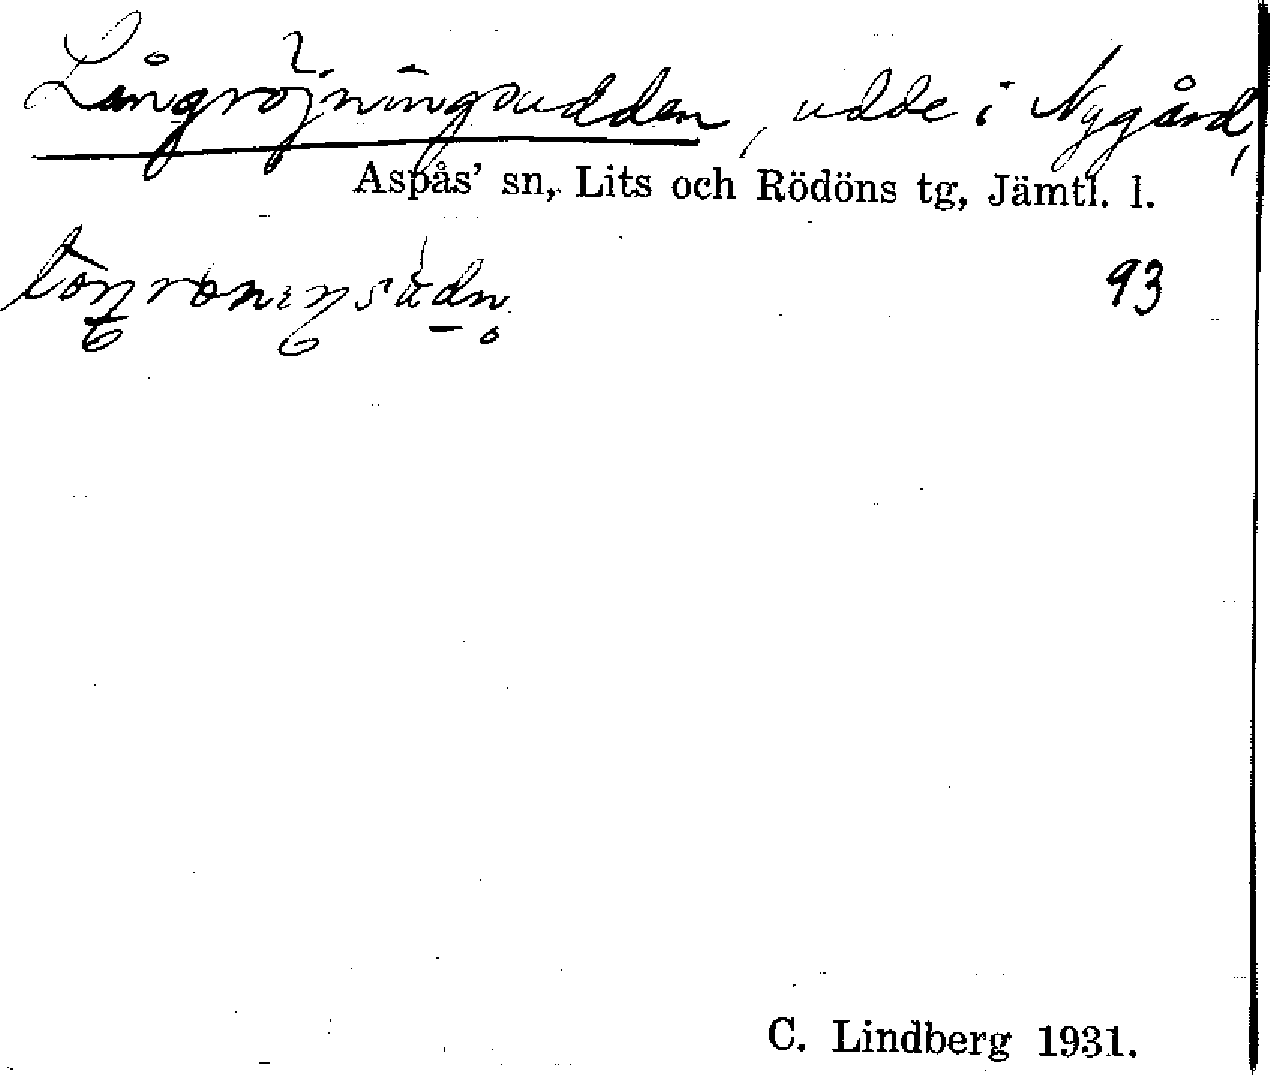 Långröjningsudden, udde i Nygård,
Aspås' sn, Lits och Rödöns tg, Jämtl. l.
93
C. Lindberg 1931.